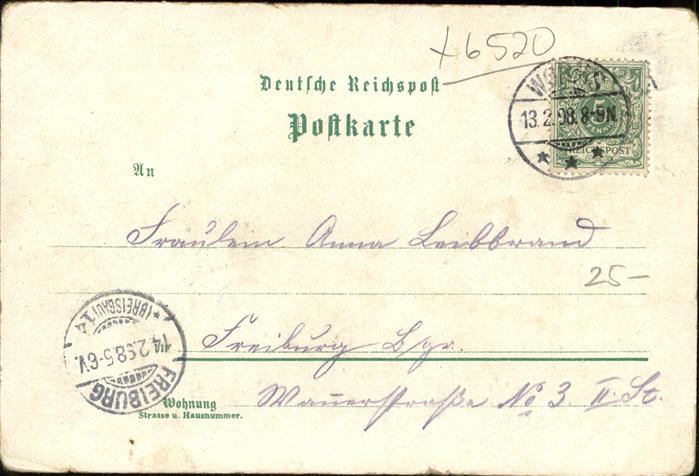 +6520
Deutsche Reichspost
Postkarte
13.2.98.8-9N.
5
REICHSPOST
An
Fräulein Anna Leibbrand
25-
in
Freiburg Bgr.
Wohnung
Strasse u. Hausnummer.
No 3 II. St.
FREIBURG
*(BREISGAU)14
14.2.98.5-6V.